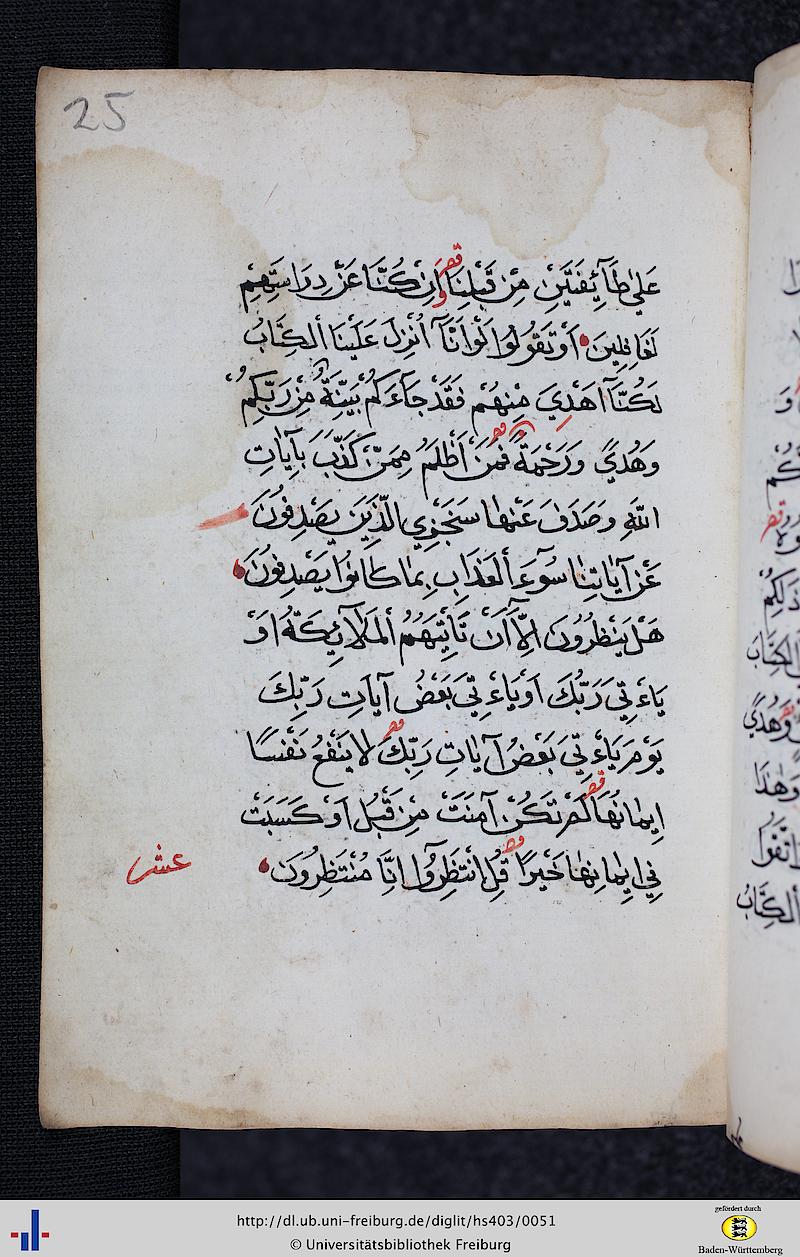 25
عَلَى طَآئِفَتَيْنِ مِنْ قَبْلِنَا وَاِنْ كُنَّا عَنْ دِرَاسَتِهِمْ
لَغَافِلِينَ اَوْ تَقُولُوا لَوْ اَنَّآ اُنْزِلَ عَلَيْنَا الْكِتَابُ
لَكُنَّآ اَهْدٰى مِنْهُمْ فَقَدْ جَآءَكُمْ بَيِّنَةٌ مِنْ رَبِّكُمْ
وَهُدًى وَرَحْمَةٌ فَمَنْ اَظْلَمُ مِمَّنْ كَذَّبَ بِآيَاتِ
اللّٰهِ وَصَدَفَ عَنْهَا سَنَجْزِي الَّذِينَ يَصْدِفُونَ
عَنْ آيَاتِنَا سُوٓءَ الْعَذَابِ بِمَا كَانُوا يَصْدِفُونَ
هَلْ يَنْظُرُونَ اِلَّآ اَنْ تَاْتِيَهُمُ الْمَلَآئِكَةُ اَوْ
يَاءْتِيَ رَبُّكَ اَوْ يَاءْتِيَ بَعْضُ آيَاتِ رَبِّكَ
يَوْمَ يَاءْتِي بَعْضُ آيَاتِ رَبِّكَ لَا يَنْفَعُ نَفْسًا
اِيمَانُهَا لَمْ تَكُنْ آمَنَتْ مِنْ قَبْلُ اَوْ كَسَبَتْ
فِي اِيمَانِهَا خَيْرًا قُلِ انْتَظِرُوٓا اِنَّا مُنْتَظِرُونَ
عشر
http://dl.ub.uni-freiburg.de/diglit/hs403/0051
© Universitätsbibliothek Freiburg
gefördert durch
Baden-Württemberg